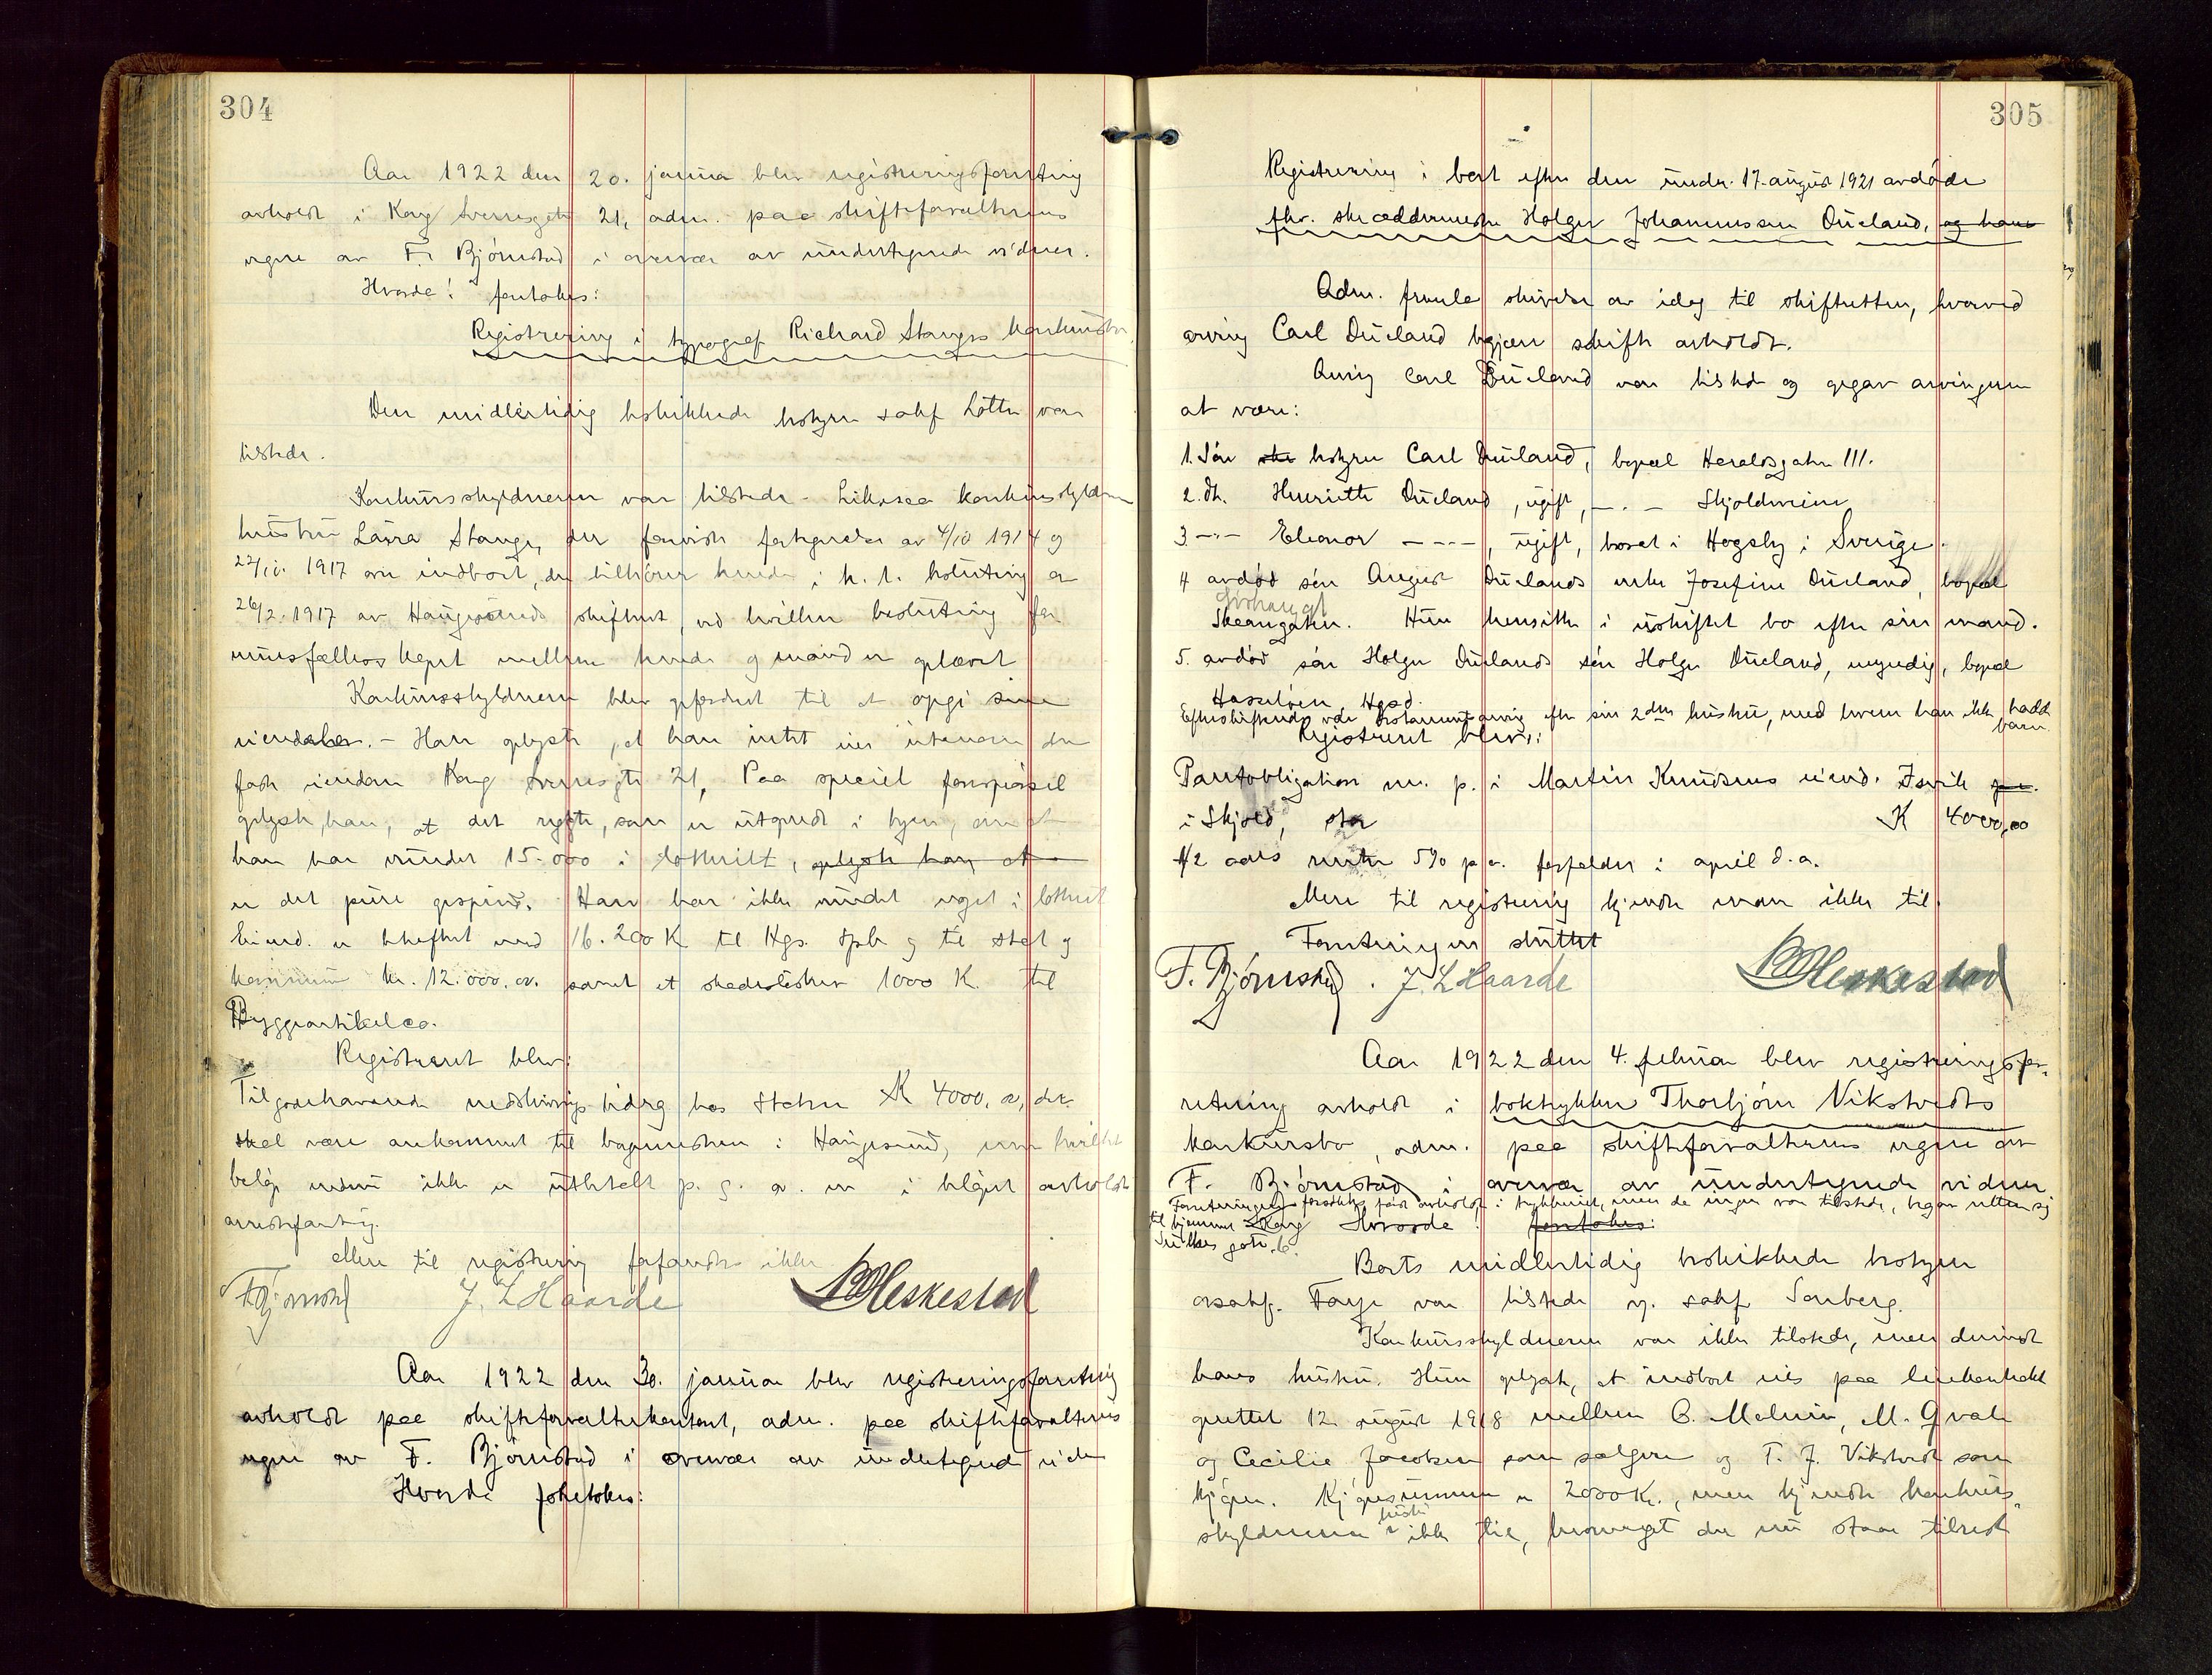 304
Aar 1922 den 20. januar blev registreringsforretning
avholdt i Kong Sverresgate 21, adm. paa skifteforvalterens
vegne av F. Bjørnstad i overvær av undertegnede vidner.
Hvorda! foretokes:
Registrering i typograf Richard Stanges konkursbo.
Den midlertidig beskikkede bostyrer sakf Lothe var
tilstede.
Konkursskyldneren var tilstede. Likesaa konkursskyldn
hustru Laura Stange, der foreviste av 4/10 1914 og
22/10. 1917 indbort, der tilhører hende i h. t. beslutning av
26/2. 1917 av Haugesunds skifteret, ved hvilken beslutning for
muesfælles mellem hende og mand er oplævet
Konkursskyldneren blev opfordret til at opgi sine
eiendeler. - Han oplyste, at han intet eier utenom den
faste eiendom Kong Sverresgte 21, Paa speciel forespørsel
oplyste han, at det rygte, som er utspredt i byen, om at
han har vundet 15.000 i lotteriet, oplyste han, at
er det pure opspind. Han har ikke vundet noget i lotteriet
Eiend. er beheftet med 16.200 K til Hgs. Spb og til stat og
kommune kr. 12.000. samt et skadesløsbrev 1000 K. til
Byggeartikelco.
Registreret blev:
Tilgodehavende nedskrivnings bidrag hos Staten K 4000, det
skal være ankommet til borgmesteren i Haugesund, men hvilket
beløp endnu ikke er utbetalt p. g. a. en i beløpet avholdt
arrestforretng.
Mere til registrering forfandtes ikke
F Bjørnstad J. L Haarde B Heskestad
Aar 1922 den 30. januar blev registreringsforretning
avholdt paa skifteforvalterkontoret, adm. paa skifteforvalterens
vegne av F. Bjørnstad i overvær av undertegnede vidner
Hvorda foretokes:
305
Registrering i boet efter den under 17. august 1921 avdøde
fhv. skræddermester Holger Johannessen Dueland, og hans
Adm. fremla skrivelse av idag til skifteretten, hvorved
arving Carl Dueland begjærer skifte avholdt.
Arving Carl Dueland var tilstede og opgav arvingerne
at være:
1. Søn bostyrer Carl Dueland, bopæl Haraldsgaten 111.
2. dt. Henriette Dueland, ugift, - " - Skjoldveien
3 - " - Eleonor - - - -, ugift, bosat i Hogsby i Sverige.
4 avdød søn August Duelands enke Josefine Dueland, bopæl
Skaaregaten. Hun hensitter i uskiftet bo efter sin mand.
5. avdød søn Holger Duelands søn Holger Dueland, myndig, bopæl
Hasseløen Hgsd.
Efterskiftende var testamentsarving efter sin 2den hustru, med hvem han ikke hadde barn.
Registreret blev:
Pantobligation m. p. i Martin Knudsens eiend. Isvik
i Skjold, stor K 4000,00
1/2 aars rente 5% p a. forfalder i april d. a.
Mere til registrering kjendte man ikke til.
Forretningen sluttet
F. Bjørnstad. J. L Haarde B Heskestad
Aar 1922 den 4. februar blev registreringsfor-
retning avholdt i boktrykker Thorbjørn Vikstvedts
konkursbo, adm. paa skifteforvalterens vegne av
F. Bjørnstad i overvær av undertegnede vidner
Forretningen forsøktes først avholdt i trykkeriet, men da ingen var tilstede, begav retten sig
til hjemmet Hvorda foretokes:
gate 6.
Boets midlertidig beskikkede bostyrer
osakf. Faye var tilstede og sakf Sonberg.
Konkursskyldneren var ikke tilstede, men derimot
hans hustru. Hun oplyste, at indboet eies paa leiekontrakt
oprettet 12. august 1918 mellem C. Melvin, M. Qvale
og Cecilie Jacobsen som sælgere og T. J. Vikstvedt som
kjøper. Kjøpesummen er 2000 Kr., men kjendte konkurs-
skyldnerens hustru ikke til, hvormeget der nu staar tilrest